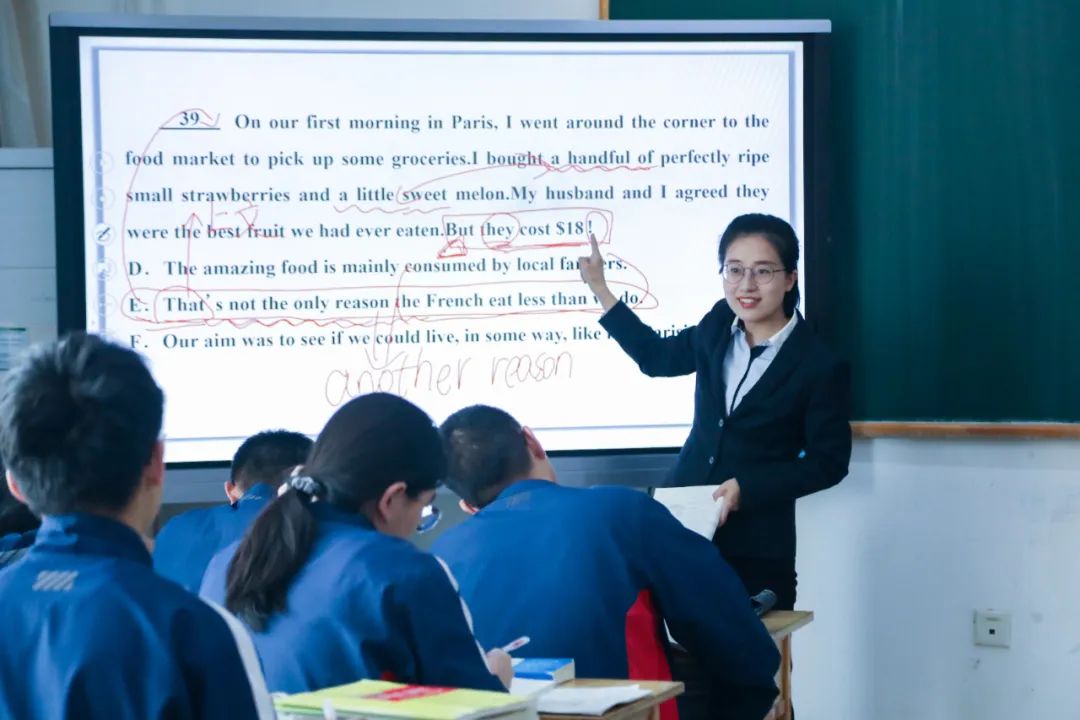 39 On our first morning in Paris, I went around the corner to the
food market to pick up some groceries.I bought a handful of perfectly ripe
small strawberries and a little sweet melon.My husband and I agreed they
were the best fruit we had ever eaten.But they cost $18!
上文
D. The amazing food is mainly consumed by local
E. That's not the only reason the French eat less than we do.
F. Our aim was to see if we could live, in some way, like
another reason